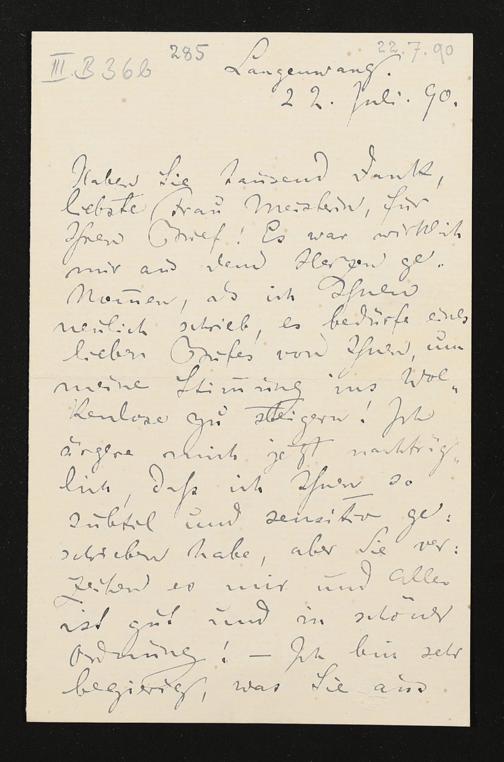 III B 36b 285 22.7.90
Langenwang.
22. Juli. 90.
Haben Sie tausend Dank,
liebste Frau Meisterin, für
Ihren Brief! Es war wirklich
mir aus dem Herzen ge„
kom̅en, als ich Ihnen
neulich schrieb, es bedürfe eines
lieben Grußes von Ihnen, um
meine Stim̅ung ins Wol„
kenlose zu steigern! Ich
ärgere mich jetzt nachträg„
lich, daß ich Ihnen so
subtil und sensitiv ge:
schrieben habe, aber Sie ver:
zeihen es mir und alles
ist gut und in schöner
Ordnung! — Ich bin sehr
begierig, was Sie aus